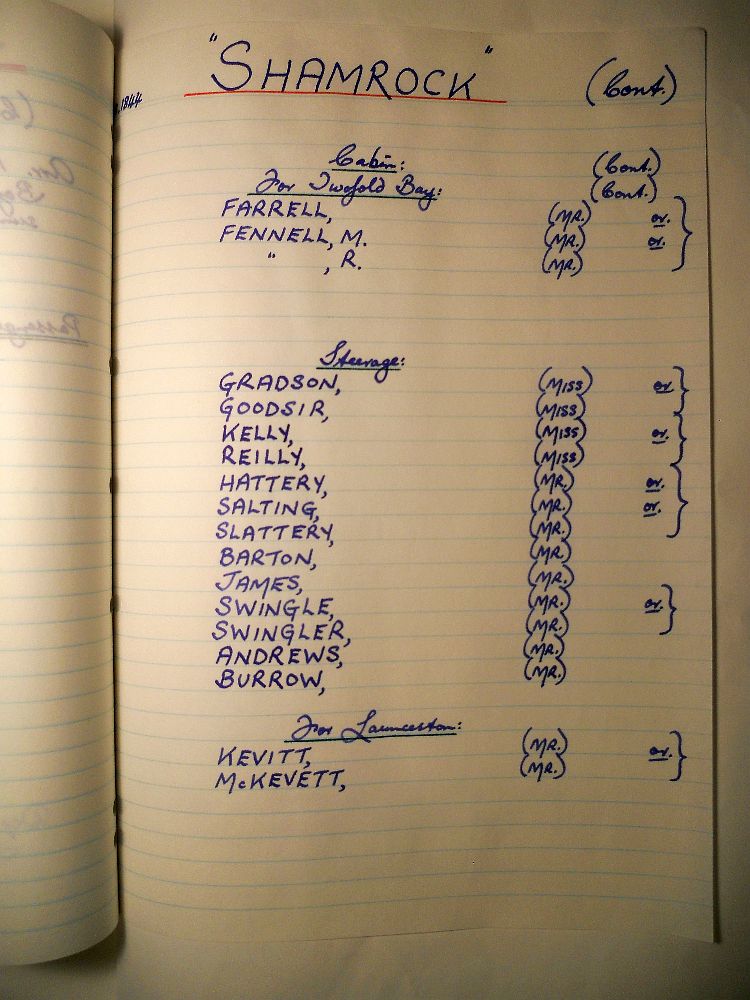 "SHAMROCK" (Cont.)
1844
Cabin: (Cont.)
For Twofold Bay: (Cont.)
FARRELL, (MR.) or.
FENNELL, M. (MR.) or.
" , R. (MR.)
Steerage:
GRADSON, (MISS) or.
GOODSIR, (MISS)
KELLY, (MISS) or.
REILLY, (MISS)
HATTERY, (MR.) or.
SALTING, (MR.) or.
SLATTERY, (MR.)
BARTON, (MR.)
JAMES, (MR.)
SWINGLE, (MR.) or.
SWINGLER, (MR.)
ANDREWS, (MR.)
BURROW, (MR.)
For Launceston:
KEVITT, (MR.) or.
McKEVETT, (MR.)